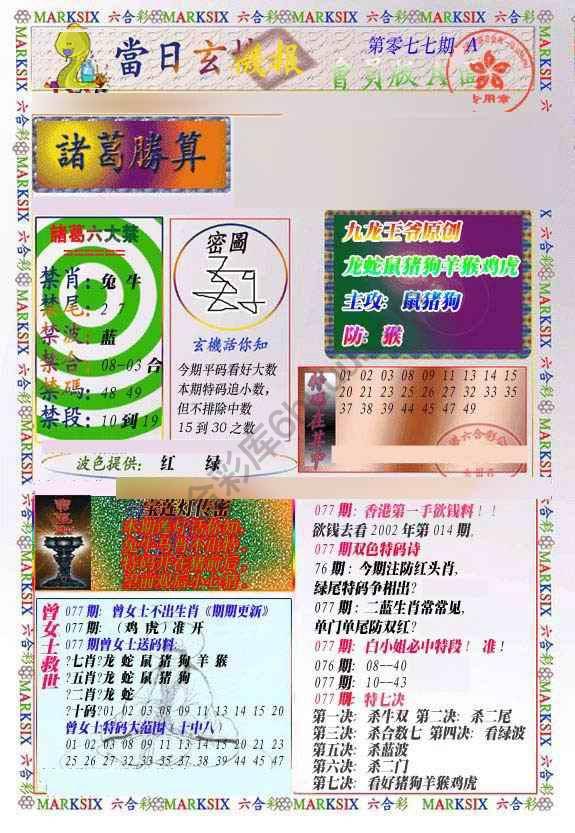 MARKSIX 六合彩 MARKSIX 六合彩 MARKSIX 六合彩 MARKSIX 六合彩 MARKSIX 六合彩
當日玄機報
第零七七期 A
諸葛勝算
諸葛六大禁
禁肖：兔牛
禁尾：2 7
禁波：蓝
禁合：08-03合
禁碼：48-49
禁段：10到19
密圖
玄機話你知
今期平码看好大数
本期特码追小数，
但不排除中数
15到30之数
波色提供： 红 绿
九龙王爷原创
龙蛇鼠猪狗羊猴鸡虎
主攻：鼠猪狗
防：猴
01 02 03 08 09 11 13 14 15
20 21 23 25 26 27 31 32 35
37 38 39 44 45 47 49
077期：曾女士不出生肖《期期更新》
077期：（鸡虎）准开
077期曾女士送码料：
?七肖?龙 蛇 鼠 猪 狗 羊 猴
?五肖?龙 蛇 鼠 猪 狗
?二肖?龙 蛇
?十码?01 02 03 08 09 11 13 14 15 20
曾女士特码大范围（十中八）
01 02 03 08 09 11 14 15 20 21 23
25 26 27 31 32 35 37 44 45 46 47
曾女士救世
077期：香港第一手欲钱料！！
欲钱去看2002年第014期，
077期双色特码诗
76期：今期注防红头肖，
绿尾特码争相出？
077期：二蓝生肖常常见，
单门单尾防双红？
077期：白小姐必中特段！ 准！
076期：08--40
077期：10--43
077期：特七决
第一决：杀牛双 第二决：杀二尾
第三决：杀合数七 第四决：看绿波
第五决：杀蓝波
第六决：杀二门
第七决：看好猪狗羊猴鸡虎
MARKSIX 六合彩 MARKSIX 六合彩 MARKSIX 六合彩 MARKSIX 六合彩 MARKSIX 六合彩